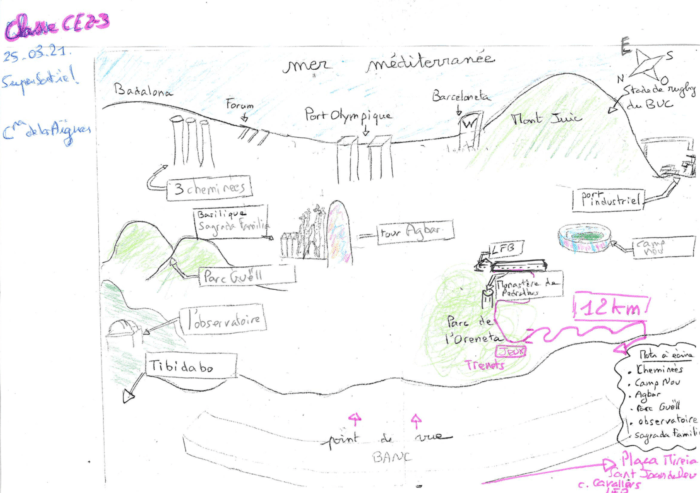 Classe CE2-3
25.03.21
mer méditerranée
Badalona
Forum
Port Olympique
Barceloneta
W
Mont Juic
E
S
N
O
Stade de rugby
du BUC
3 cheminées
port
industriel
Basilique
Sagrada Familia
Tour Agbar
camp
nou
LFB
Monastère de
Pedralbes
Parc Guëll
12 km
l'observatoire
Parc de
l'Oreneta
JEUX
Trenets
Tibidabo
Mots à écrire
• Cheminées
• Camp Nou
• Agbar
• Parc Guëll
• observatoire
• Sagrada Famili
point de vue
BANC
Plaça Mireia
Sant Joan de Deu
c. Cavallers
LFB